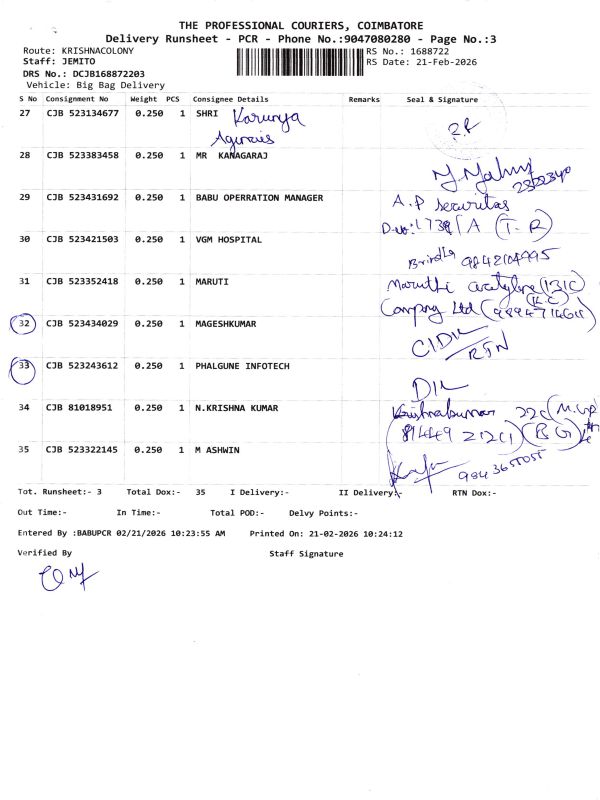 THE PROFESSIONAL COURIERS, COIMBATORE
Delivery Runsheet - PCR - Phone No.:9047080280 - Page No.:3
Route: KRISHNACOLONY
RS No.: 1688722
Staff: JEMITO
RS Date: 21-Feb-2026
DRS No.: DCJB168872203
Vehicle: Big Bag Delivery
S No Consignment No Weight PCS Consignee Details Remarks Seal & Signature
27 CJB 523134677 0.250 1 SHRI Karunya
28 CJB 523383458 0.250 1 MR KANAGARAJ
29 CJB 523431692 0.250 1 BABU OPERRATION MANAGER A.P Securitas
30 CJB 523421503 0.250 1 VGM HOSPITAL
31 CJB 523352418 0.250 1 MARUTI Maruthi
Ltd
32 CJB 523434029 0.250 1 MAGESHKUMAR
RTN
33 CJB 523243612 0.250 1 PHALGUNE INFOTECH
34 CJB 81018951 0.250 1 N.KRISHNA KUMAR Krishnakumar
35 CJB 523322145 0.250 1 M ASHWIN
Tot. Runsheet:- 3 Total Dox:- 35 I Delivery:- II Delivery:- RTN Dox:-
Out Time:- In Time:- Total POD:- Delvy Points:-
Entered By :BABUPCR 02/21/2026 10:23:55 AM Printed On: 21-02-2026 10:24:12
Verified By Staff Signature